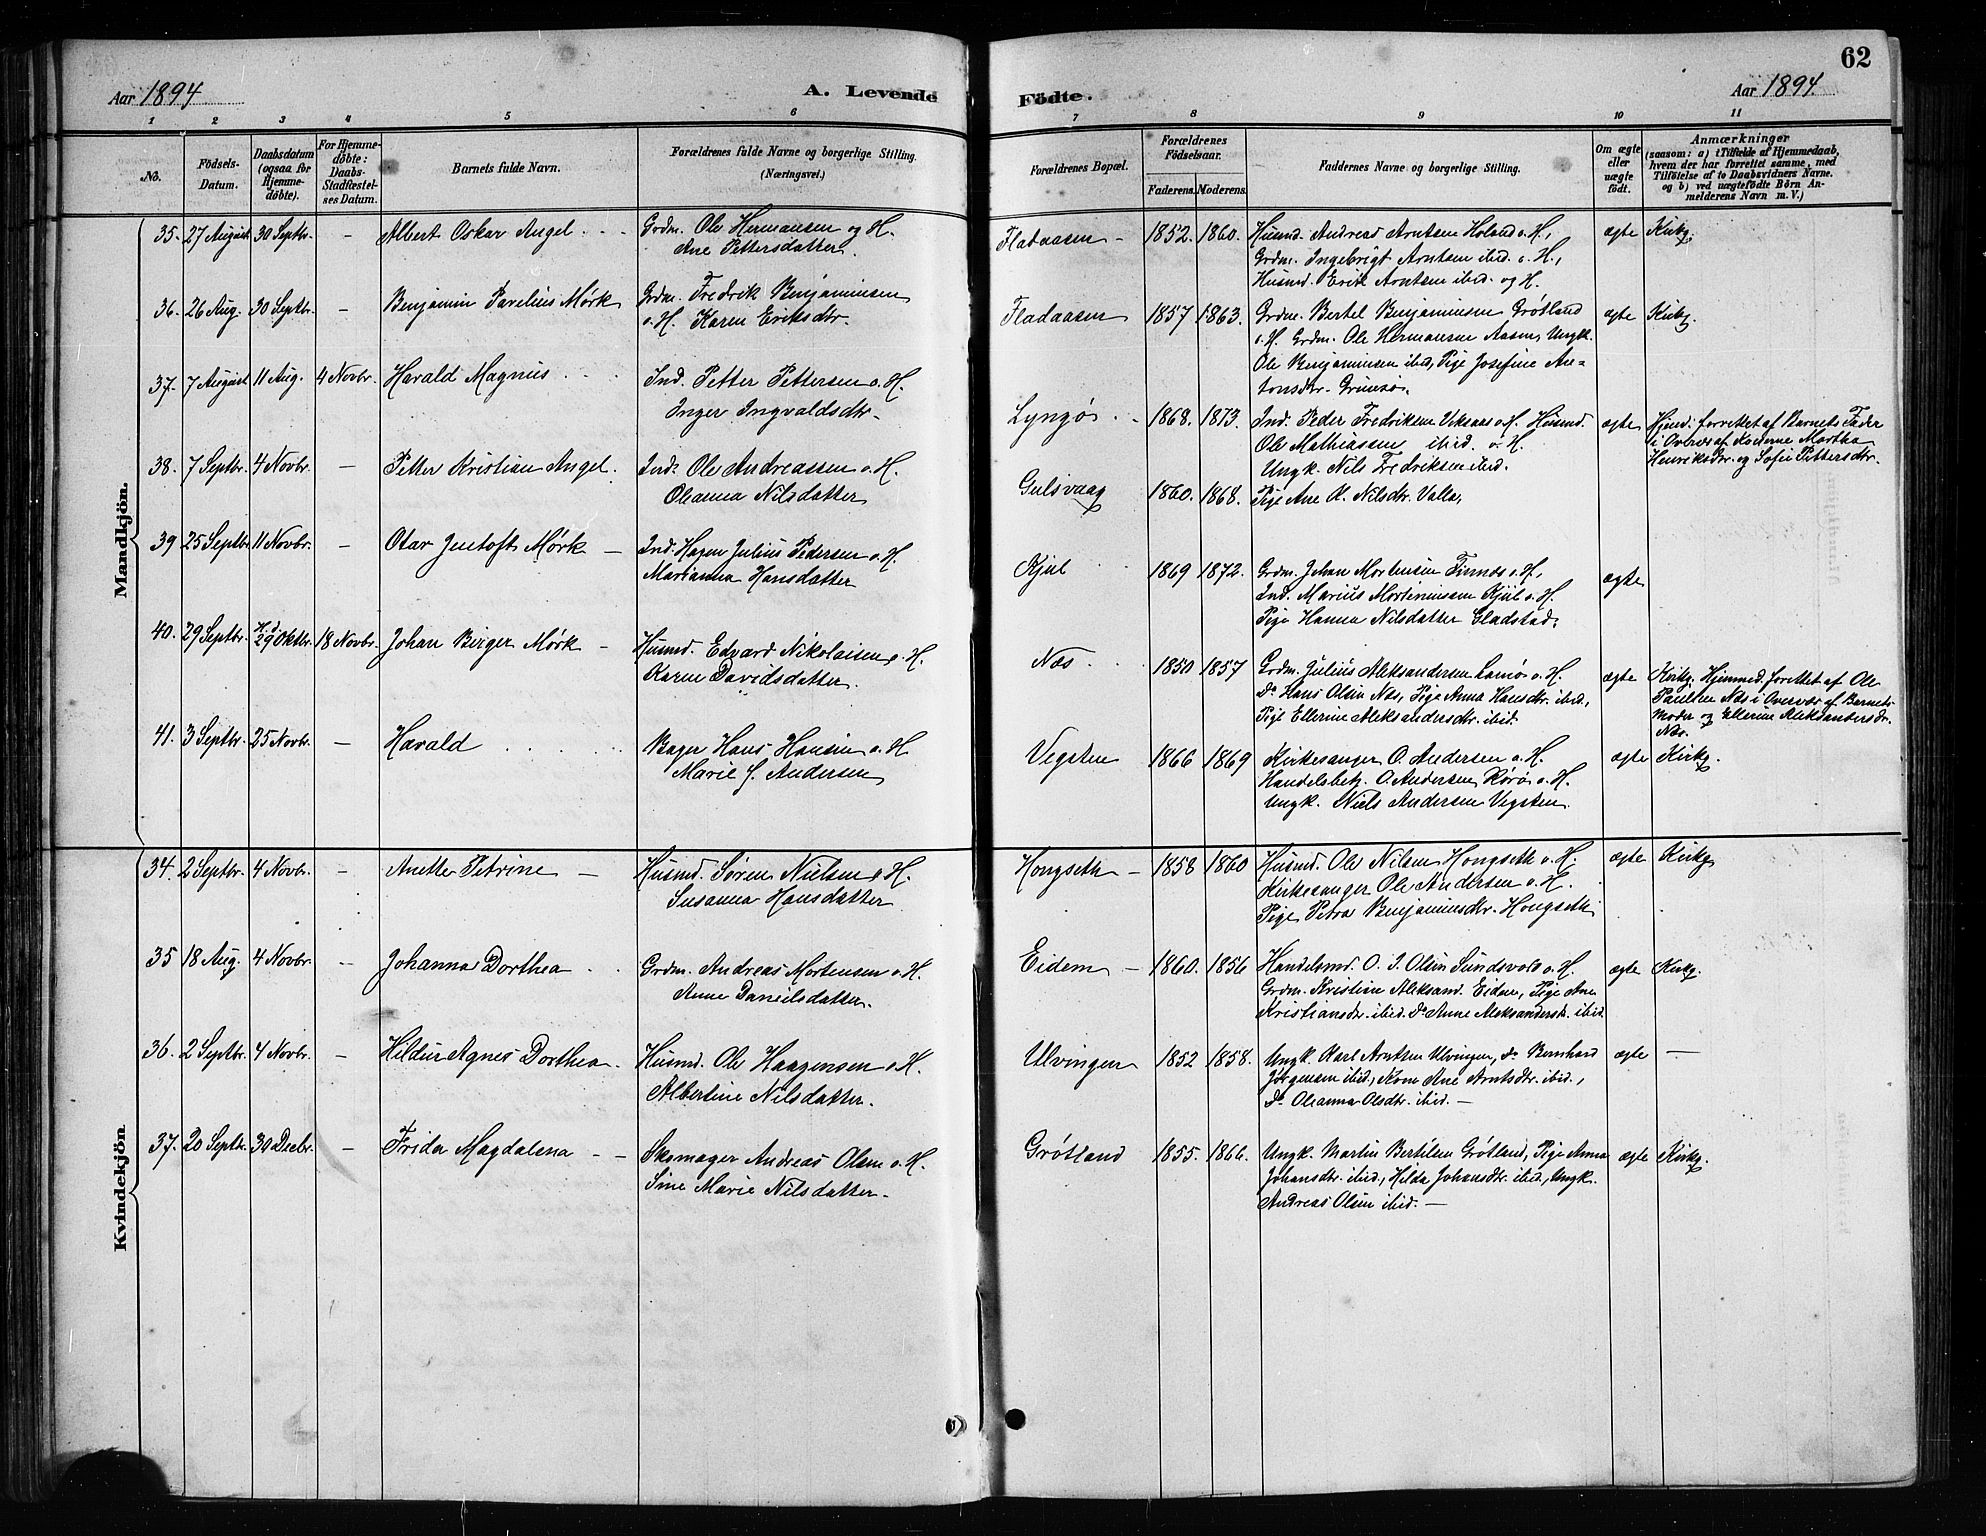 62
Aar 1894
A. Levende
Födte.
Aar 1894.
1 2 3 4 5 6 7 8 9 10 11
No.
Födsels-
Datum.
Daabsdatum
(ogsaa for
Hjemme-
döbte).
For Hjemme-
döbte:
Daabs-
Stadfæstel-
ses Datum.
Barnets fulde Navn.
Forældrenes fulde Navne og borgerlige Stilling.
(Næringsvei.)
Forældrenes Bopæl.
Forældrenes
Födselsaar.
Faderens. Moderens.
Faddernes Navne og borgerlige Stilling.
Om ægte
eller
uægte
födt.
Anmærkninger
(saasom: a) i Tilfælde af Hjemmedaab,
hvem der har forrettet samme, med
Tilföielse af to Daabsvidners Navne.
og b) ved uægtefödte Börn An-
melderens Navn m. V.)
Mandkjön.
35. 27 August 30 Septbr. - Albert Oskar Angel. Grdm. Ole Hermansen og H.
Ane Pettersdatter.
Fladaasen - 1852. 1860. Husmd. Andreas Arntsen Høland o. H., ægte Kirkg.
Grdm. Ingebrigt Arntsen ibid. o. H.,
Husmd. Erik Arntsen ibid. og H.
36. 26 Aug. 30 Septbr. - Benjamin Pavelius Mørk Grdm. Fredrik Benjaminsen
o. H. Karen Eriksdtr.
Fladaasen 1857 1863. Grdm. Bertel Benjaminsen Grøtland ægte Kirkg.
o. H. Grdm. Ole Hermansen Aasen, Ungk.
Ole Benjaminsen ibid, Pige Josefine An-
tonsdtr.
37. 7 August 11 Aug. 4 Novbr. Harald Magnus Ind. Petter Pettersen o. H.
Inger Ingvaldsdtr.
Lyngø 1868. 1873. Ind. Peder Fredriksen Vikaas o. H. Husmd. ægte Hjmd. forrettet af Barnets Fader
Ole Mathiassen ibid. o. H. i Overvær af Konerne Martha
Ungk. Nils Fredriksen ibid. Henriksdtr. og Sofie Pettersdtr.
38. 7 Septbr. 4 Novbr. - Petter Kristian Angel. Ind. Ole Andreassen o. H.
Oleanna Nilsdatter
Gulsvaag 1860. 1868. Pige Ane O. Nilsdtr. Valla,
39 25 Septbr. 11 Novbr. - Otar Justoft Mørk - Ind. Hagen Julius Pedersen o. H.
Marianna Hansdatter
Kjul 1869 1872. Grdm. Johan Mortensen Tirnæs o. H., ægte
Ind. Marius Morteninsen Kjul o. H.
Pige Hanna Nilsdatter Gladstad.
40. 29 Septbr. H. d. 29 Oktbr. 18 Novbr. Johan Birger Mørk - Husmd. Edvard Nikolaisen o. H.
Karen Davidsdatter.
Næs 1850 1857 Grdm. Julius Aleksandersen Lamø o. H. ægte Kirkg. Hjemmed. forrettet af Ole
Do Hans Olsen Næs, Pige Anna Hansdtr. ibid., Paulsen Næs i Overvær af Barnets
Pige Ellerine Aleksandersdtr. ibid. Moder og Ellerine Aleksandersdr.
Næs.
41. 3 Septbr. 25 Novbr. - Harald Bager Hans Hansen o. H
Marie J. Andersen
Vegsten 1866 1869 Kirkesanger O. Andersen o. H. ægte Kirkg.
Handelsbetj. O. Andersen Rørø o. H.
Ungk. Niels Andersen Vegsten.
Kvindekjön
34. 2 Septbr. 4 Novbr. - Anette Petrine - Husmd. Søren Nielsen o H.
Susanna Hansdatter
Hongseth - 1858 1860 Husmd. Ole Nilsen Hongseth o. H. ægte Kirkg
Kirkesanger Ole Andersen o. H.
Pige Petra Benjaminsdtr. Hongseth
35 18 Aug. 4 Novbr. - Johanna Dorthea Grdm. Andreas Mortensen o. H.
Anne Danielsdatter.
Eidem - 1860. 1856 Handelsmd. O. J. Olsen Sundsvold o. H. ægte Kirkg.
Grdm. Kristian Aleksand. Eidem, Pige Ane
Kristiansdtr. ibid. Do Anne Aleksandersdtr. ibid.
36. 2 Septbr. 4 Novbr. - Hildur Agnes Dorthea. Husmd. Ole Haagensen o H.
Albertine Nilsdatter.
Ulvingen 1852 1858. Ungk. Karl Arntsen Ulvingen, do Bernhard ægte -
Jørgensen ibid., Kone Ane Arntsdtr. ibid.,
Do Oleanna Olsdtr. ibid. -
37. 20 Septbr. 30 Decbr. - Frida Magdalena - - Skomager Andreas Olsen o. H.
Sine Marie Nilsdatter.
Grøtland 1855. 1866. Ungk. Martin Bertelsen Grøtland, Pige Anna ægte Kirkg.
Johansdtr. ibid., Hilda Johansdtr. ibid., Ungk.
Andreas Olsen ibid. -